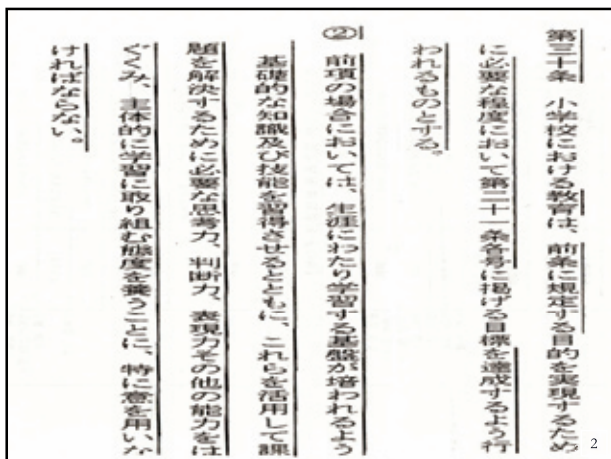 第三十条　小学校における教育は、前条に規定する目的を実現するため
に必要な程度において第二十一条各号に掲げる目標を達成するよう行
われるものとする。
②　前項の場合においては、生涯にわたり学習する基盤が培われるよう
基礎的な知識及び技能を習得させるとともに、これらを活用して課
題を解決するために必要な思考力、判断力、表現力その他の能力をは
ぐくみ、主体的に学習に取り組む態度を養うことに、特に意を用いな
ければならない。
2